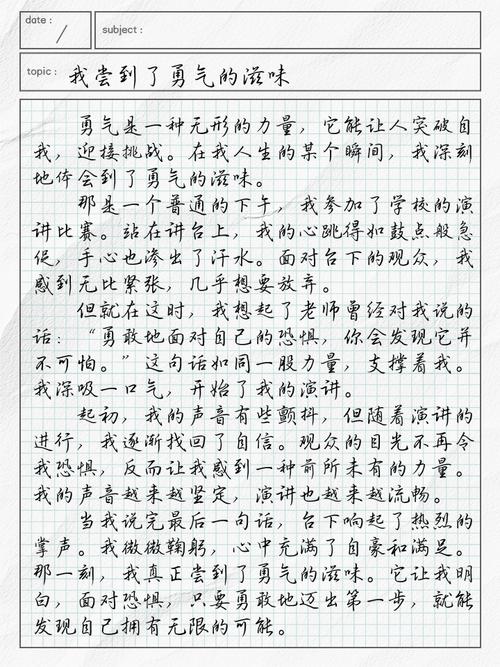 date :
subject :
topic : 我尝到了勇气的滋味
勇气是一种无形的力量，它能让人突破自
我，迎接挑战。在我人生的某个瞬间，我深刻
地体会到了勇气的滋味。
那是一个普通的下午，我参加了学校的演
讲比赛。站在讲台上，我的心跳得如鼓点般急
促，手心也渗出了汗水。面对台下的观众，我
感到无比紧张，几乎想要放弃。
但就在这时，我想起了老师曾经对我说的
话：“勇敢地面对自己的恐惧，你会发现它并
不可怕。”这句话如同一股力量，支撑着我。
我深吸一口气，开始了我的演讲。
起初，我的声音有些颤抖，但随着演讲的
进行，我逐渐找回了自信。观众的目光不再令
我恐惧，反而让我感到一种前所未有的力量。
我的声音越来越坚定，演讲也越来越流畅。
当我说完最后一句话，台下响起了热烈的
掌声。我微微鞠躬，心中充满了自豪和满足。
那一刻，我真正尝到了勇气的滋味。它让我明
白，面对恐惧，只要勇敢地迈出第一步，就能
发现自己拥有无限的可能。